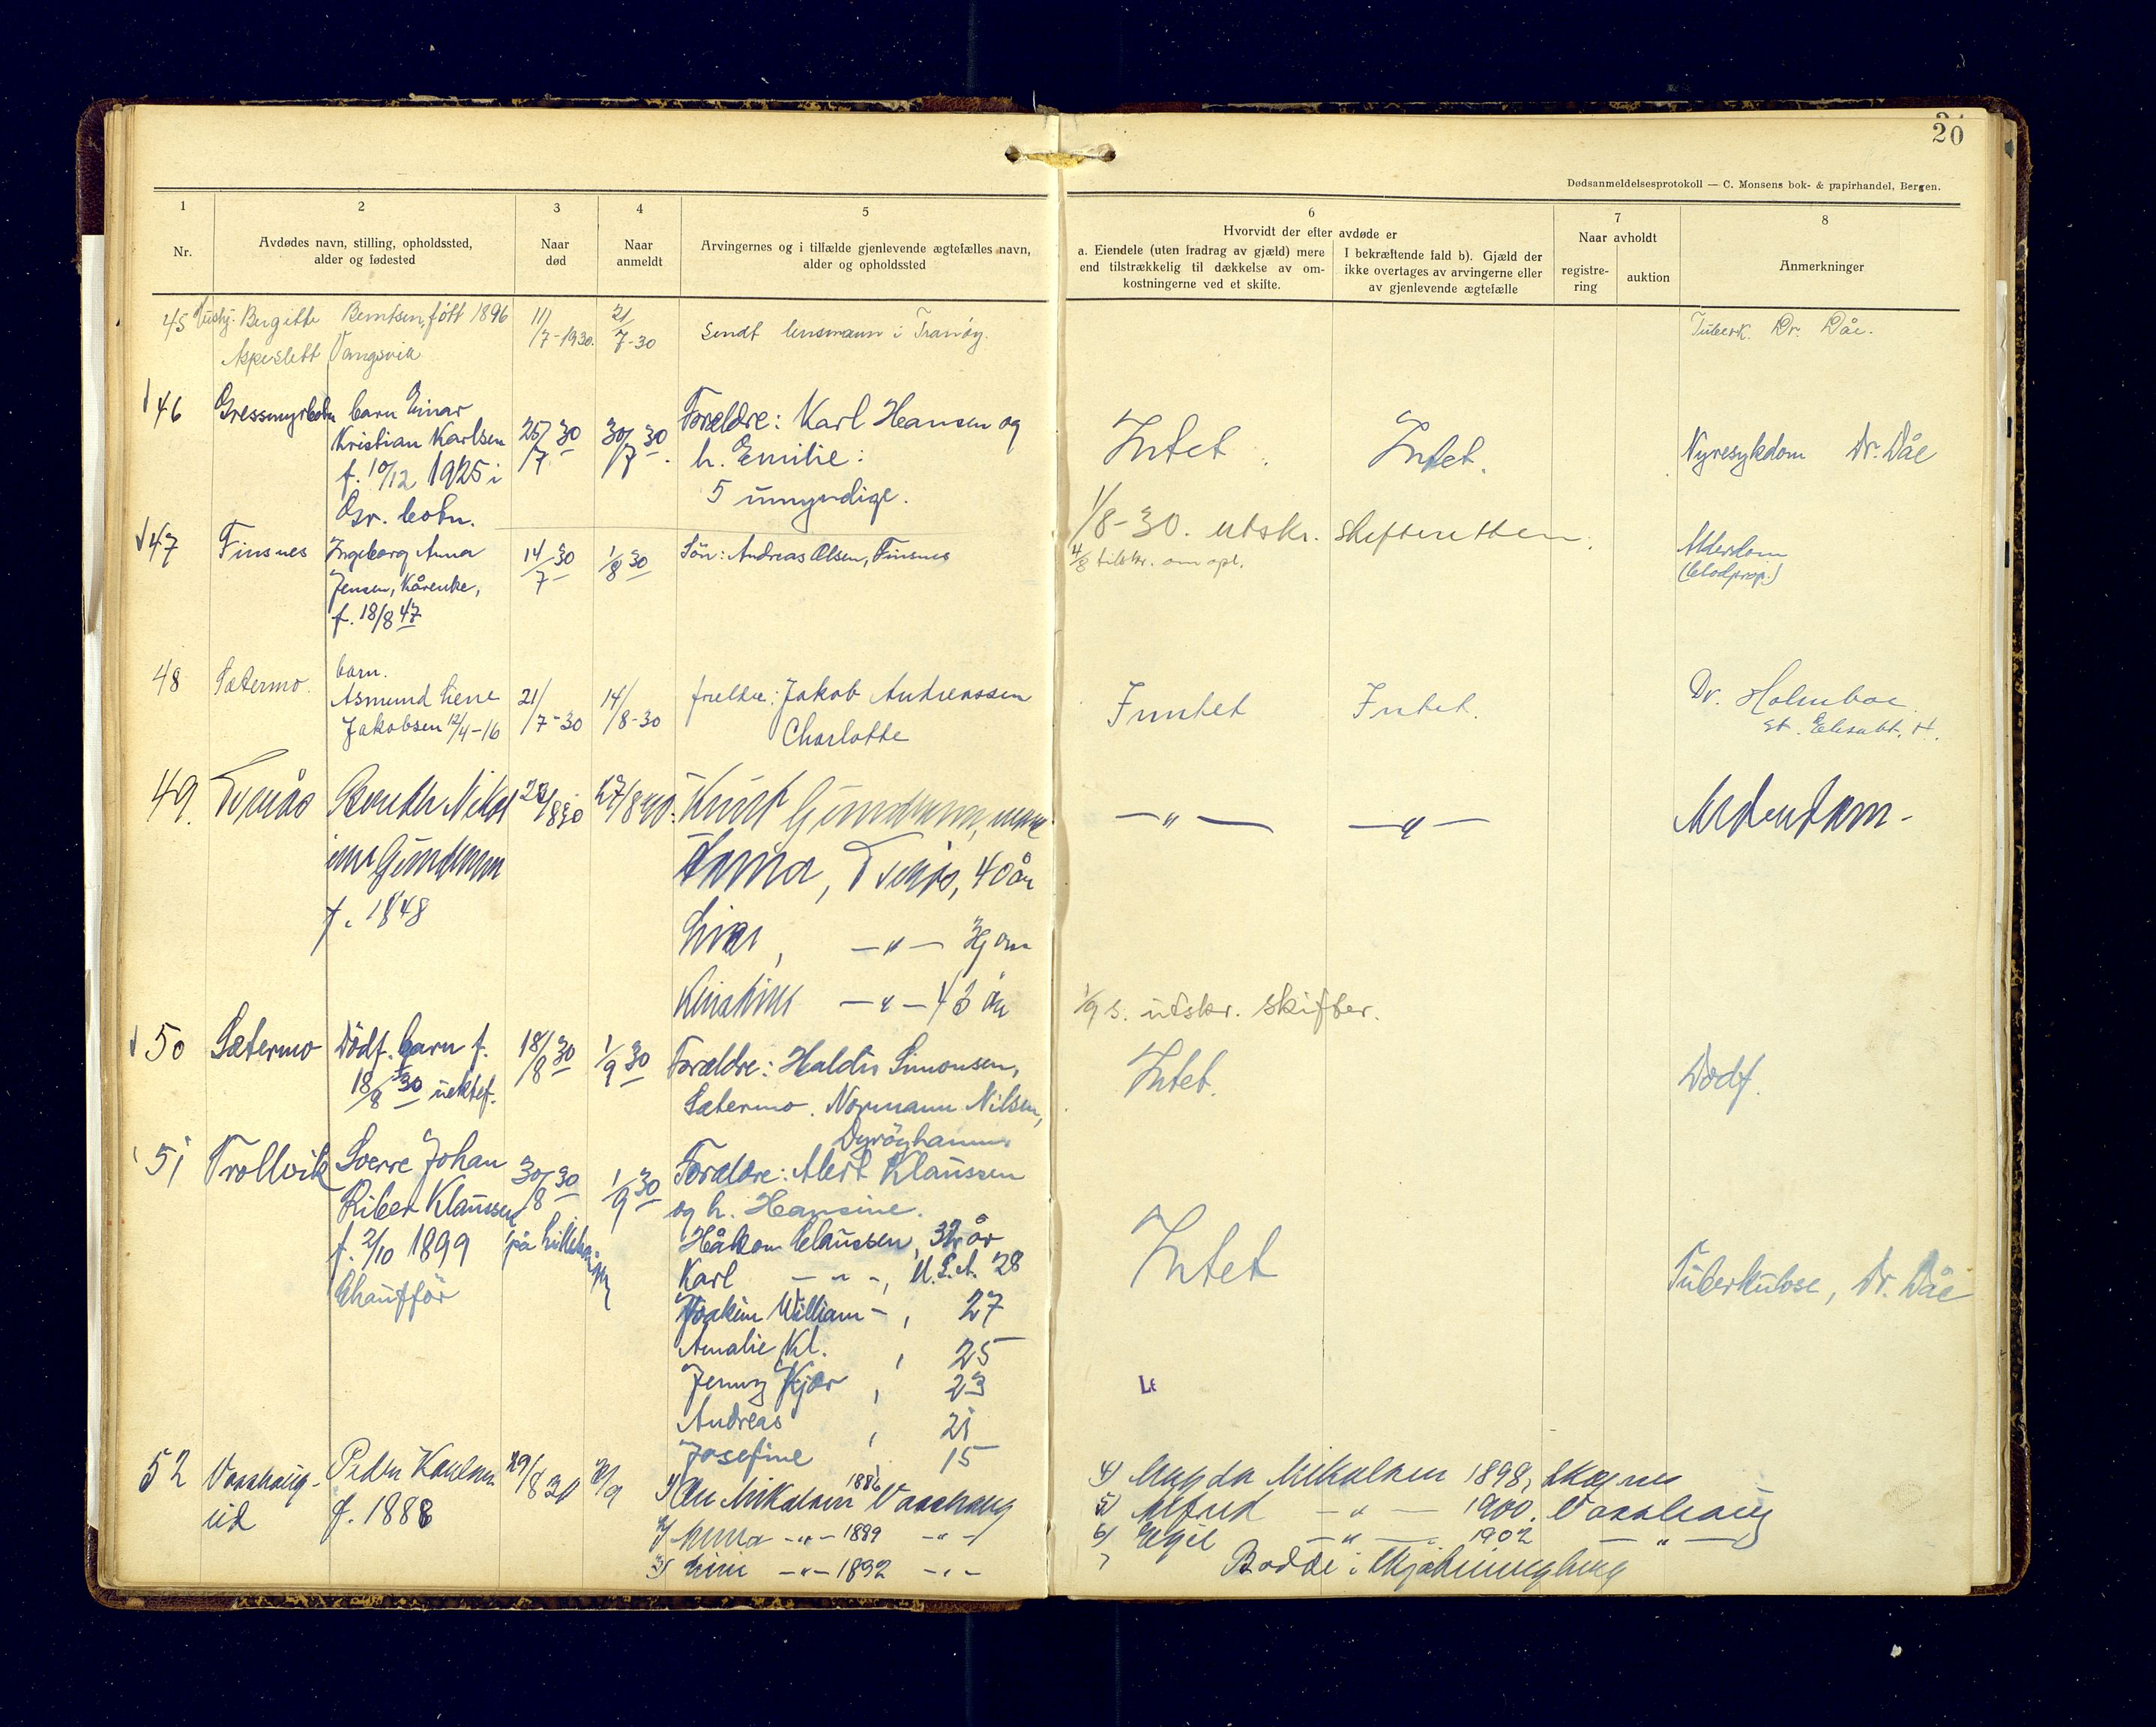 20
Dødsanmeldelsesprotokoll — C. Monsens bok- & papirhandel, Bergen.
1 2 3 4 5 6 7 8
Nr.
Avdødes navn, stilling, opholdssted, alder og fødested
Naar død
Naar anmeldt
Arvingernes og i tilfælde gjenlevende ægtefælles navn, alder og opholdssted
Hvorvidt der efter avdøde er
a. Eiendele (uten fradrag av gjæld) mere end tilstrækkelig til dækkelse av omkostningerne ved et skifte.
I bekræftende fald b). Gjæld der ikke overtages av arvingerne eller av gjenlevende ægtefælle
Naar avholdt
registrering
auktion
Anmerkninger
45 Bergitte Berntsen, født 1896 11/7-1930. 21/7-30 Sendt lensmann i Tranøy. Tuberk. Dr. Dåe.
Aspeslett Vangsvik
46 Gressmyrbotn barn Einar
Kristian Karlsen 25/7 30 30/7 30. Foreldre: Karl Hansen og Intet. Intet. Nyresykdom Dr. Dåe
f. 10/12 1925 i h. Emilie:
Gr. botn. 5 umyndige.
1/8-30. utskr. skifteretten.
47 Finsnes Ingeborg Anna 14/7 30 1/8 30 Sön: Andreas Olsen, Finsnes 4/8 tilskr. om opl. Alderdom
Jensen, Kårenke, (blodprop.)
f. 18/8 47
48 Sætermo. barn.
Asmund Liene 21/7-30 14/8-30 Jakob Andreassen Inntet Intet. Dr. Holmboe
Jakobsen 12/4-16 Charlotte St. Elisabt. H.
49. 27/8 30. Knut — " — — " — Alderdom -
f. 1848 40 år
— " —
— " — år
1/9 s. utskr. skifter.
50 Sætermo Dödf. barn f. 18/8 30 1/9 30 Foreldre: Haldis Simonsen, Intet. Dødf.
18/8 30 uektef. Sætermo. Normann Nilsen,
Dyröyhamn.
51 Trollvik Sverre Johan 30/8 30 1/9 30 Foreldre: Albert Klaussen Intet Tuberkulose, Dr. Dåe
Riber Klaussen og h. Hansine.
f. 2/10 1899 på Håkon Claussen, år
Chaufför Karl — " -, U.S.A. 28
Joakim William - , 27
Amalie Kl. , 25
Jenny Kjær , 23
Andreas , 21
Josefine 15
52 Vasshaug- Peder 29/8 30 1) Mikalsen 1886 Vasshaug 4) Magda Mikalsen 1898,
eid f. 1888 2) Anna — " — 1889 — " — 5) Alfred — " — 1900. Vasshaug
3) Line — " — 1892 — " — 6) Egil — " — 1902 — " —
Bodde i